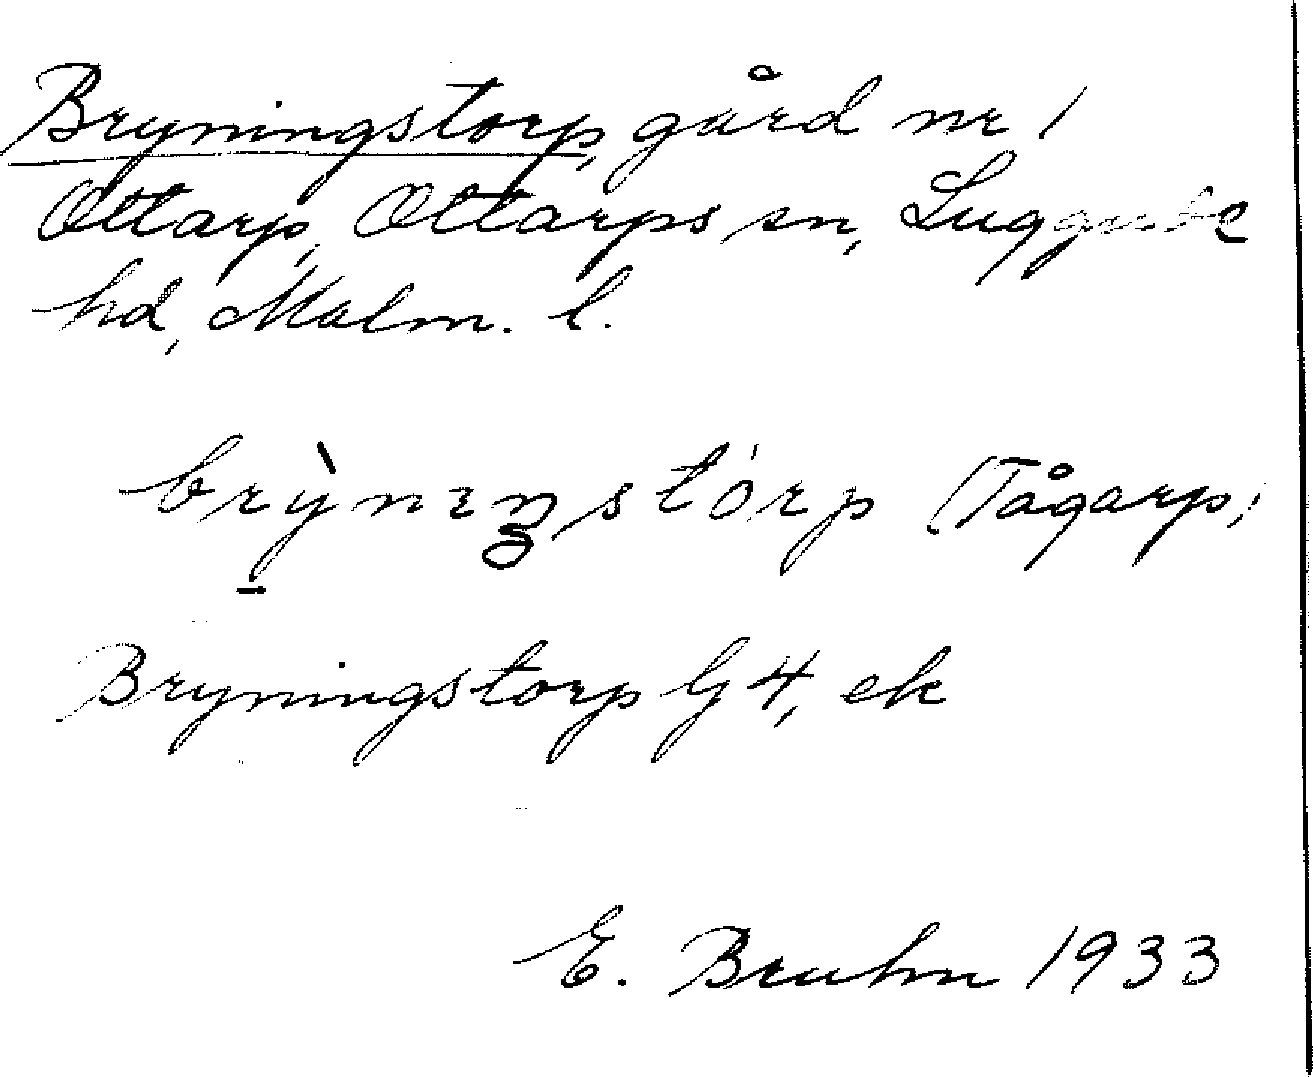 Bryningstorp, gård nr 1
Ottarp, Ottarps sn, Luggude
hd, Malm. l.
brỳnıŋstórp (Tågarp)
Bryningstorp G 4, ek
E. Bruhn 1933